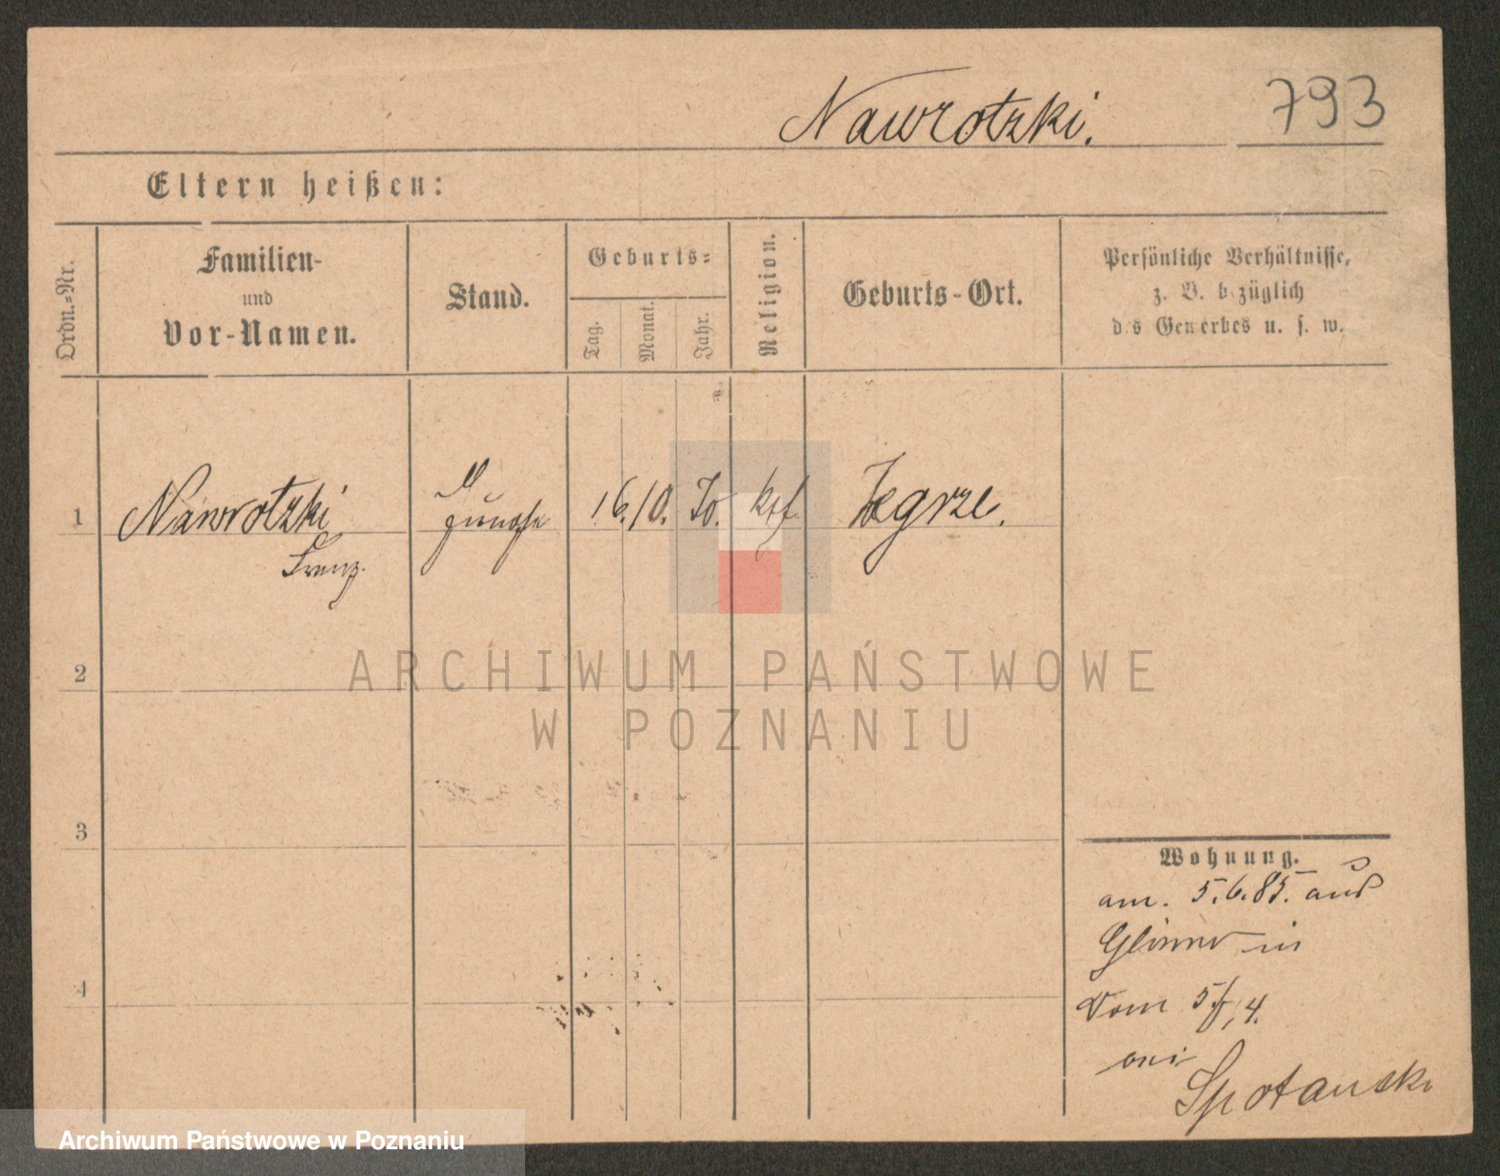 Nawrotzki.
793
Eltern heißen:
Ordn.-Nr.
Familien-
und
Vor-Namen.
Stand.
Geburts-
Tag.
Monat.
Jahr.
Religion.
Geburts-Ort.
Persönliche Verhältnisse,
z. B. bezüglich
des Gewerbes u. s. w.
1
Nawrotzki
Franz.
16. 10. 70. ktf. Zegrze.
2
3
4
Wohnung.
am. 5.6.85. aus
in
Vom 4.
Spotanski
ARCHIWUM PAŃSTWOWE
W POZNANIU
Archiwum Państwowe w Poznaniu